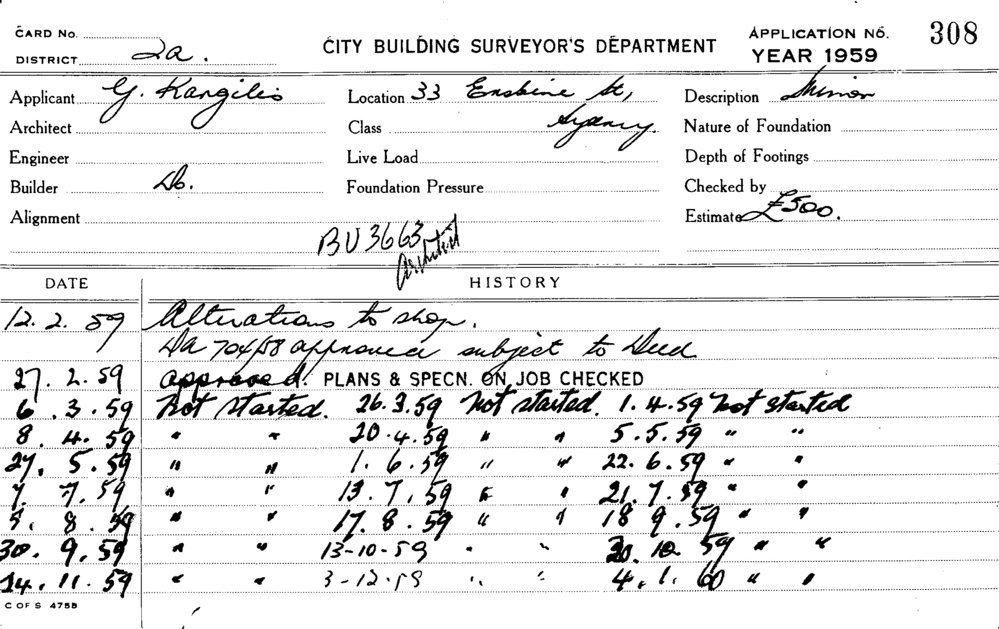 CARD No. CITY BUILDING SURVEYOR'S DEPARTMENT APPLICATION No. 308
DISTRICT 2a. YEAR 1959
Applicant G. Kangilis Location 33 Erskine St, Description Minor
Architect Class Sydney. Nature of Foundation
Engineer Live Load Depth of Footings
Builder Do. Foundation Pressure Checked by
Alignment Estimate £500.
BU 3663 Architect
DATE HISTORY
12. 2. 59 Alterations to shop.
Da 704/58 approved subject to Deed
27. 2. 59 approved. PLANS & SPECN. ON JOB CHECKED
6. 3. 59 Not started. 26.3.59 Not started. 1.4.59 Not started
8. 4. 59 " " 20.4.59 " " 5.5.59 " "
27. 5. 59 " " 1. 6. 59 " " 22. 6. 59 " "
7. 7. 59 " " 13. 7. 59 " " 21. 7. 59 " "
5. 8. 59 " " 17. 8. 59 " " 18 9. 59 " "
30. 9. 59 " " 13-10-59 " " 20. 10. 59 " "
14. 11. 59 " " 3-12-59 " " 4. 1. 60 " "
C OF S 475B